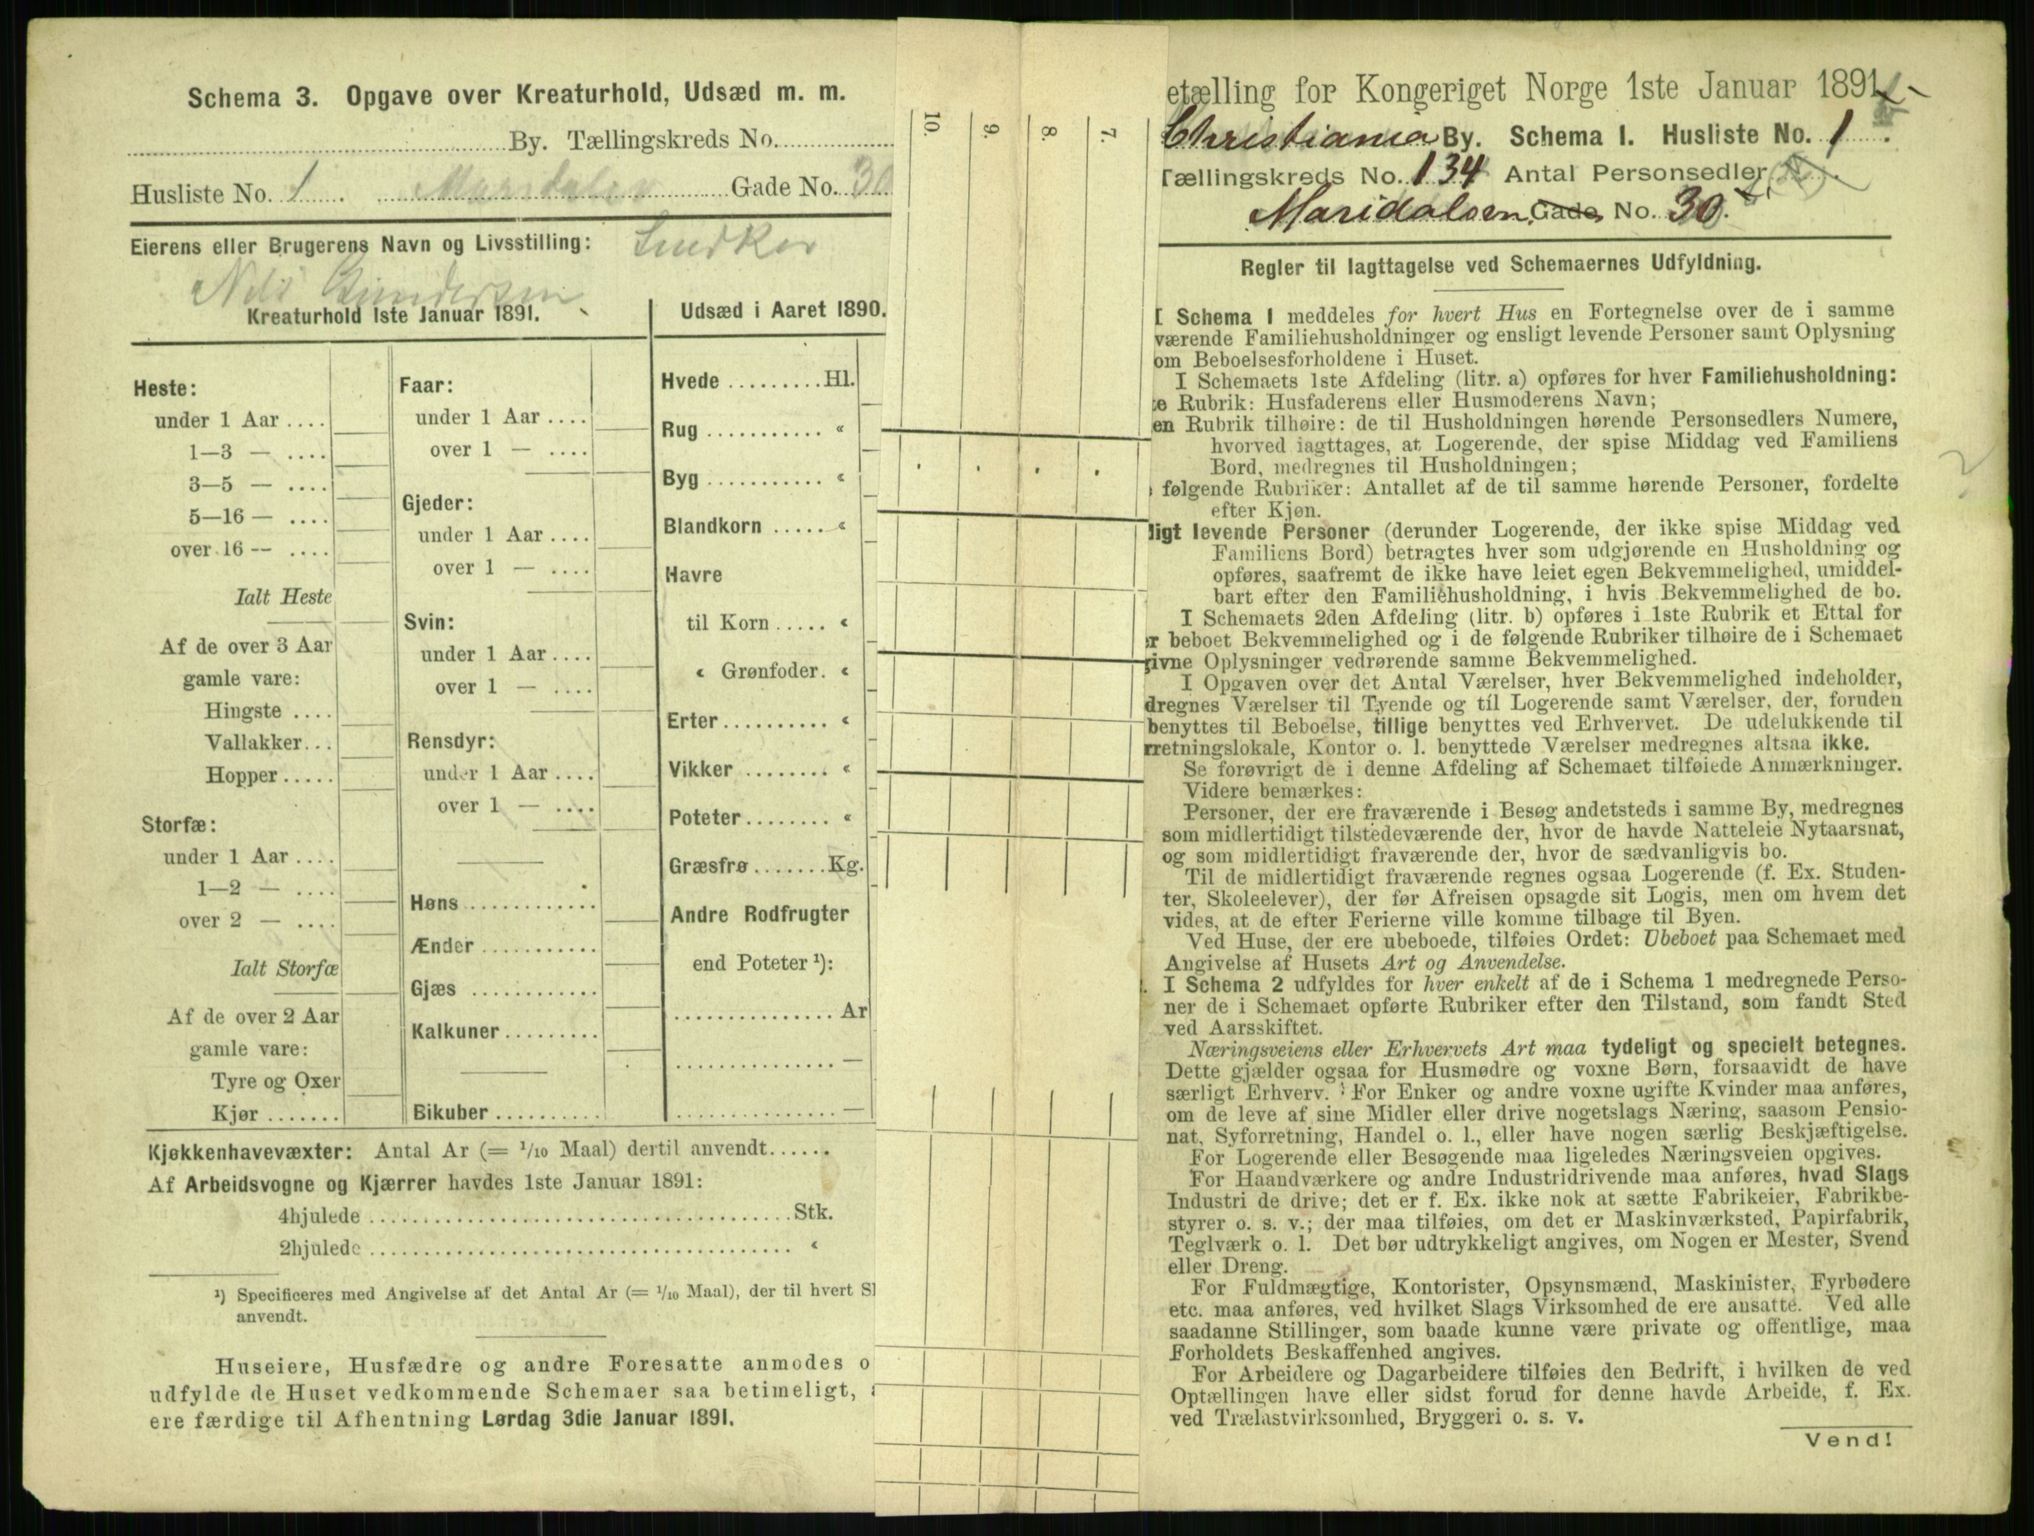 Schema 3. Opgave over Kreaturhold, Udsæd m. m.
By. Tællingskreds No.
Husliste No. 1 Maridalsv Gade No. 30
Eierens eller Brugerens Navn og Livsstilling: Snedker
Nils Gundersen
Kreaturhold 1ste Januar 1891.
Heste:
under 1 Aar
1—3 —
3—5 —
5—16 —
over 16 —
Ialt Heste
Af de over 3 Aar
gamle vare:
Hingste
Vallakker
Hopper
Storfæ:
under 1 Aar
1—2 —
over 2 —
Ialt Storfæ
Af de over 2 Aar
gamle vare:
Tyre og Oxer
Kjør
Faar:
under 1 Aar
over 1 —
Gjeder:
under 1 Aar
over 1 —
Svin:
under 1 Aar
over 1 —
Rensdyr:
under 1 Aar
over 1 —
Høns
Ænder
Gjæs
Kalkuner
Bikuber
Udsæd i Aaret 1890.
Hvede Hl.
Rug «
Byg «
Blandkorn «
Havre
til Korn «
« Grønfoder. «
Erter «
Vikker «
Poteter «
Græsfrø Kg.
Andre Rodfrugter
end Poteter ¹):
Ar
—
—
Kjøkkenhavevæxter: Antal Ar (= 1/10 Maal) dertil anvendt
Af Arbeidsvogne og Kjærrer havdes 1ste Januar 1891:
4hjulede Stk.
2hjulede «
¹) Specificeres med Angivelse af det Antal Ar (= 1/10 Maal), der til hvert Sl
anvendt.
Huseiere, Husfædre og andre Foresatte anmodes o
udfylde de Huset vedkommende Schemaer saa betimeligt,
ere færdige til Afhentning Lørdag 3die Januar 1891.
10.
9.
8.
7.
etælling for Kongeriget Norge 1ste Januar 1891.
Christiania By. Schema I. Husliste No. 1
Tællingskreds No. 134 Antal Personsedler
Maridalsen Gade No. 30
Regler til Iagttagelse ved Schemaernes Udfyldning.
I Schema I meddeles for hvert Hus en Fortegnelse over de i samme
værende Familiehusholdninger og ensligt levende Personer samt Oplysning
om Beboelsesforholdene i Huset.
I Schemaets 1ste Afdeling (litr. a) opføres for hver Familiehusholdning:
te Rubrik: Husfaderens eller Husmoderens Navn;
en Rubrik tilhøire: de til Husholdningen hørende Personsedlers Numere,
hvorved iagttages, at Logerende, der spise Middag ved Familiens
Bord, medregnes til Husholdningen;
følgende Rubriker: Antallet af de til samme hørende Personer, fordelte
efter Kjøn.
ligt levende Personer (derunder Logerende, der ikke spise Middag ved
Familiens Bord) betragtes hver som udgjørende en Husholdning og
opføres, saafremt de ikke have leiet egen Bekvemmelighed, umiddel-
bart efter den Familiehusholdning, i hvis Bekvemmelighed de bo.
I Schemaets 2den Afdeling (litr. b) opføres i 1ste Rubrik et Ettal for
r beboet Bekvemmelighed og i de følgende Rubriker tilhøire de i Schemaet
givne Oplysninger vedrørende samme Bekvemmelighed.
I Opgaven over det Antal Værelser, hver Bekvemmelighed indeholder,
dregnes Værelser til Tyende og til Logerende samt Værelser, der, foruden
benyttes til Beboelse, tillige benyttes ved Erhvervet. De udelukkende til
rretningslokale, Kontor o. l. benyttede Værelser medregnes altsaa ikke.
Se forøvrigt de i denne Afdeling af Schemaet tilføiede Anmærkninger.
Videre bemærkes:
Personer, der ere fraværende i Besøg andetsteds i samme By, medregnes
som midlertidigt tilstedeværende der, hvor de havde Natteleie Nytaarsnat,
og som midlertidigt fraværende der, hvor de sædvanligvis bo.
Til de midlertidigt fraværende regnes ogsaa Logerende (f. Ex. Studen-
ter, Skoleelever), der før Afreisen opsagde sit Logis, men om hvem det
vides, at de efter Ferierne ville komme tilbage til Byen.
Ved Huse, der ere ubeboede, tilføies Ordet: Ubeboet paa Schemaet med
Angivelse af Husets Art og Anvendelse.
I Schema 2 udfyldes for hver enkelt af de i Schema 1 medregnede Perso-
ner de i Schemaet opførte Rubriker efter den Tilstand, som fandt Sted
ved Aarsskiftet.
Næringsveiens eller Erhvervets Art maa tydeligt og specielt betegnes.
Dette gjælder ogsaa for Husmødre og voxne Børn, forsaavidt de have
særligt Erhverv. For Enker og andre voxne ugifte Kvinder maa anføres,
om de leve af sine Midler eller drive nogetslags Næring, saasom Pensio-
nat, Syforretning, Handel o. l., eller have nogen særlig Beskjæftigelse.
For Logerende eller Besøgende maa ligeledes Næringsveien opgives.
For Haandværkere og andre Industridrivende maa anføres, hvad Slags
Industri de drive; det er f. Ex. ikke nok at sætte Fabrikeier, Fabrikbe-
styrer o. s. v.; der maa tilføies, om det er Maskinværksted, Papirfabrik,
Teglværk o. l. Det bør udtrykkeligt angives, om Nogen er Mester, Svend
eller Dreng.
For Fuldmægtige, Kontorister, Opsynsmænd, Maskinister, Fyrbødere
etc. maa anføres, ved hvilket Slags Virksomhed de ere ansatte. Ved alle
saadanne Stillinger, som baade kunne være private og offentlige, maa
Forholdets Beskaffenhed angives.
For Arbeidere og Dagarbeidere tilføies den Bedrift, i hvilken de ved
Optællingen have eller sidst forud for denne havde Arbeide, f. Ex.
ved Trælastvirksomhed, Bryggeri o. s. v.
Vend!